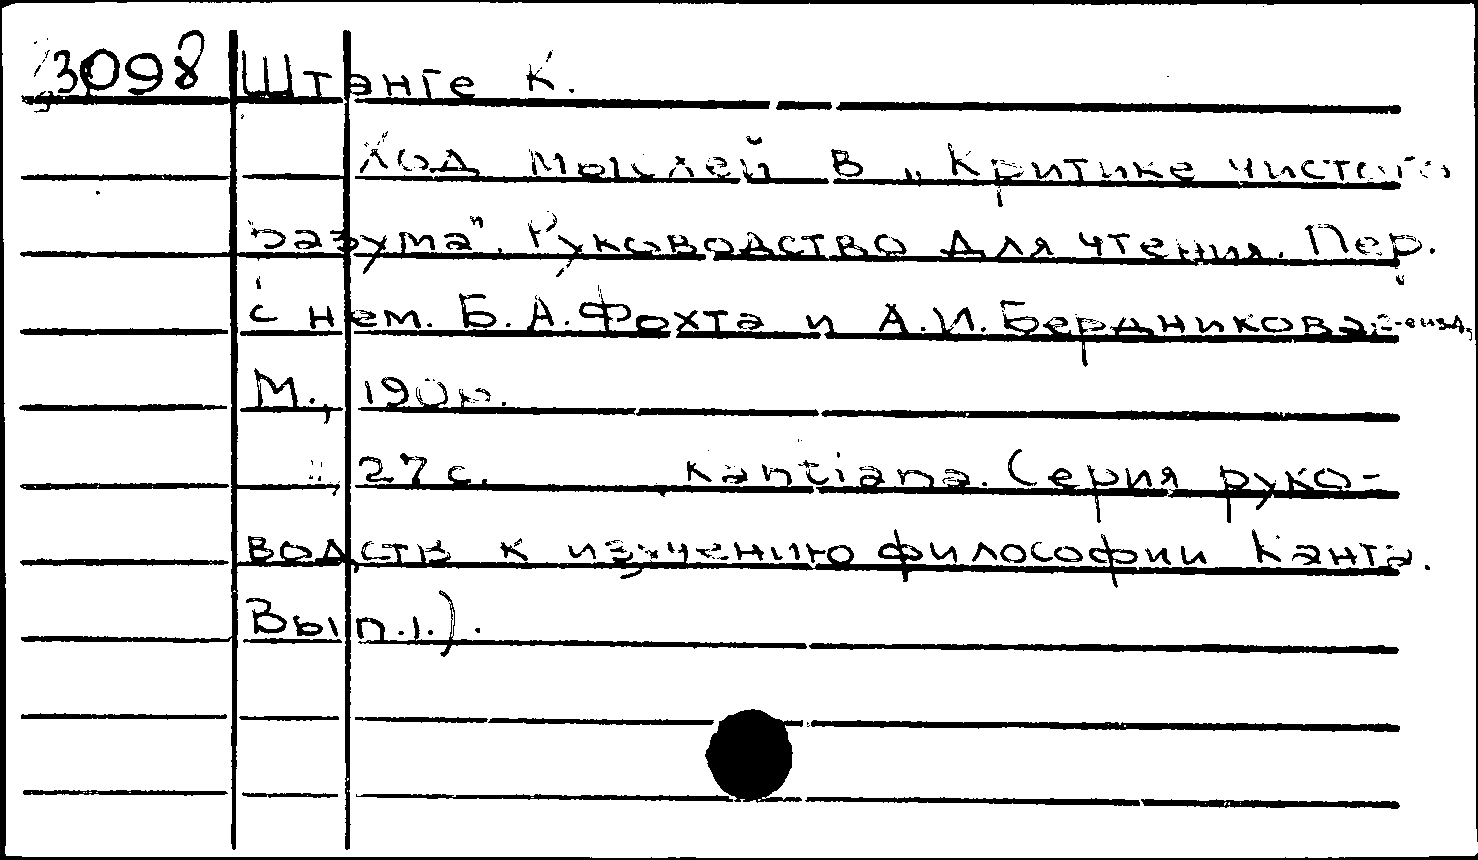 3098 Штанге К.
Ход мыслей в „Критике чистого
разума". Руководство для чтения. Пер.
с нем. Б.А.Фохта и А.И.Бердникова.
М.,
27 с. Kantiana. (Серия руко-
водств к изучению философии Канта.
Вып.1.).